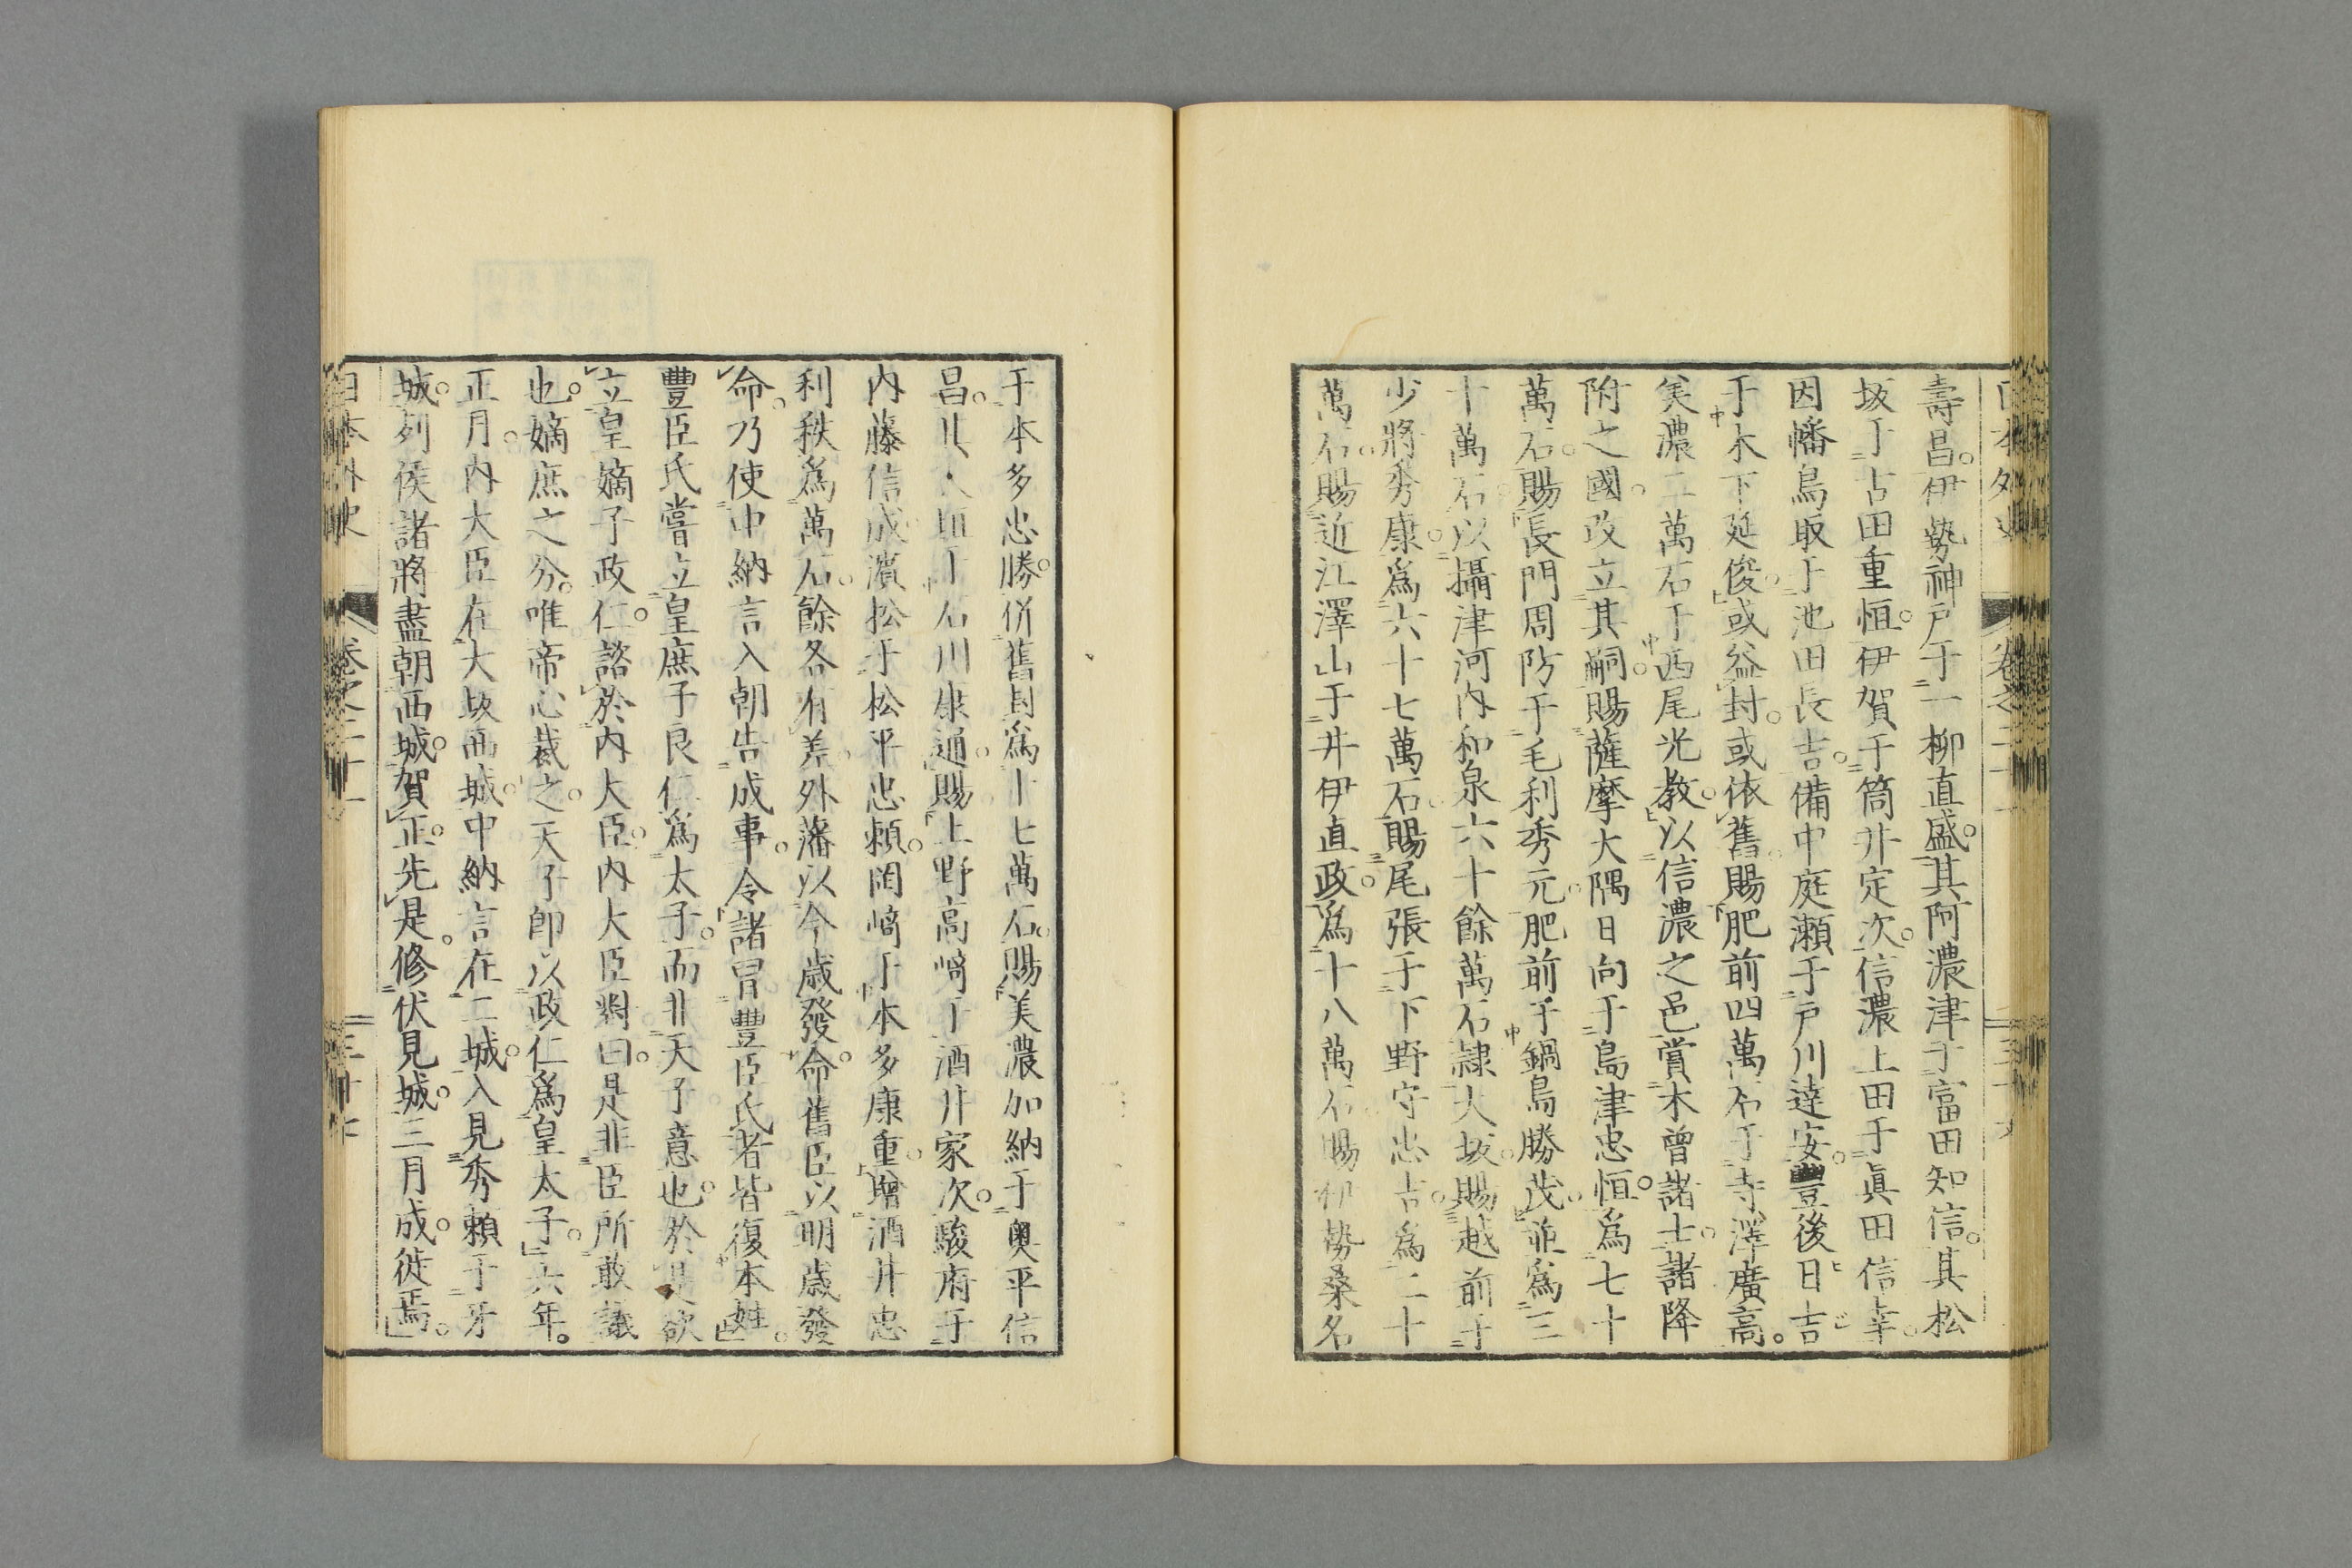 壽昌。伊勢神戶于一柳直盛。其阿濃津于富田知信。其松
坂于古田重恒。伊賀于筒井定次。信濃上田于眞田信幸。
因幡鳥取于池田長吉。備中庭瀨于戶川達安。豐後日吉
于木下延俊。或益封。或依舊。賜肥前四萬石于寺澤廣高。
美濃二萬石于西尾光教。以信濃之邑賞木曾諸士。諸降
附之國。改立其嗣。賜薩摩大隅日向于島津忠恒。爲七十
萬石。賜長門周防于毛利秀元。肥前于鍋島勝茂。並爲三
十萬石。以攝津河內和泉六十餘萬石隷大坂。賜越前于
少將秀康。爲六十七萬石。賜尾張于下野守忠吉。爲二十
萬石。賜近江澤山于井伊直政。爲十八萬石。賜伊勢桑名
于本多忠勝。併舊封爲十七萬石。賜美濃加納于奧平信
昌。其大垣于石川康通。賜上野高崎于酒井家次。駿府于
內藤信成。濱松于松平忠賴。岡崎于本多康重。增酒井忠
利秩爲萬石。餘各有差。外藩以今歲發命。舊臣以明歲發
命。乃使中納言入朝告成事。令諸冒豐臣氏者皆復本姓。
豐臣氏嘗立皇庶子良仁爲太子。而非天子意也。於是欲
立皇嫡子政仁。諮於內大臣。內大臣對曰。是非臣所敢議
也。嫡庶之分。唯帝心裁之。天子卽以政仁爲皇太子。六年。
正月。內大臣在大坂西城。中納言在二城。入見秀賴于牙
城。列侯諸將盡朝西城。賀正。先是。修伏見城。三月成。徙焉。
日本外史 卷之二十一 三十七